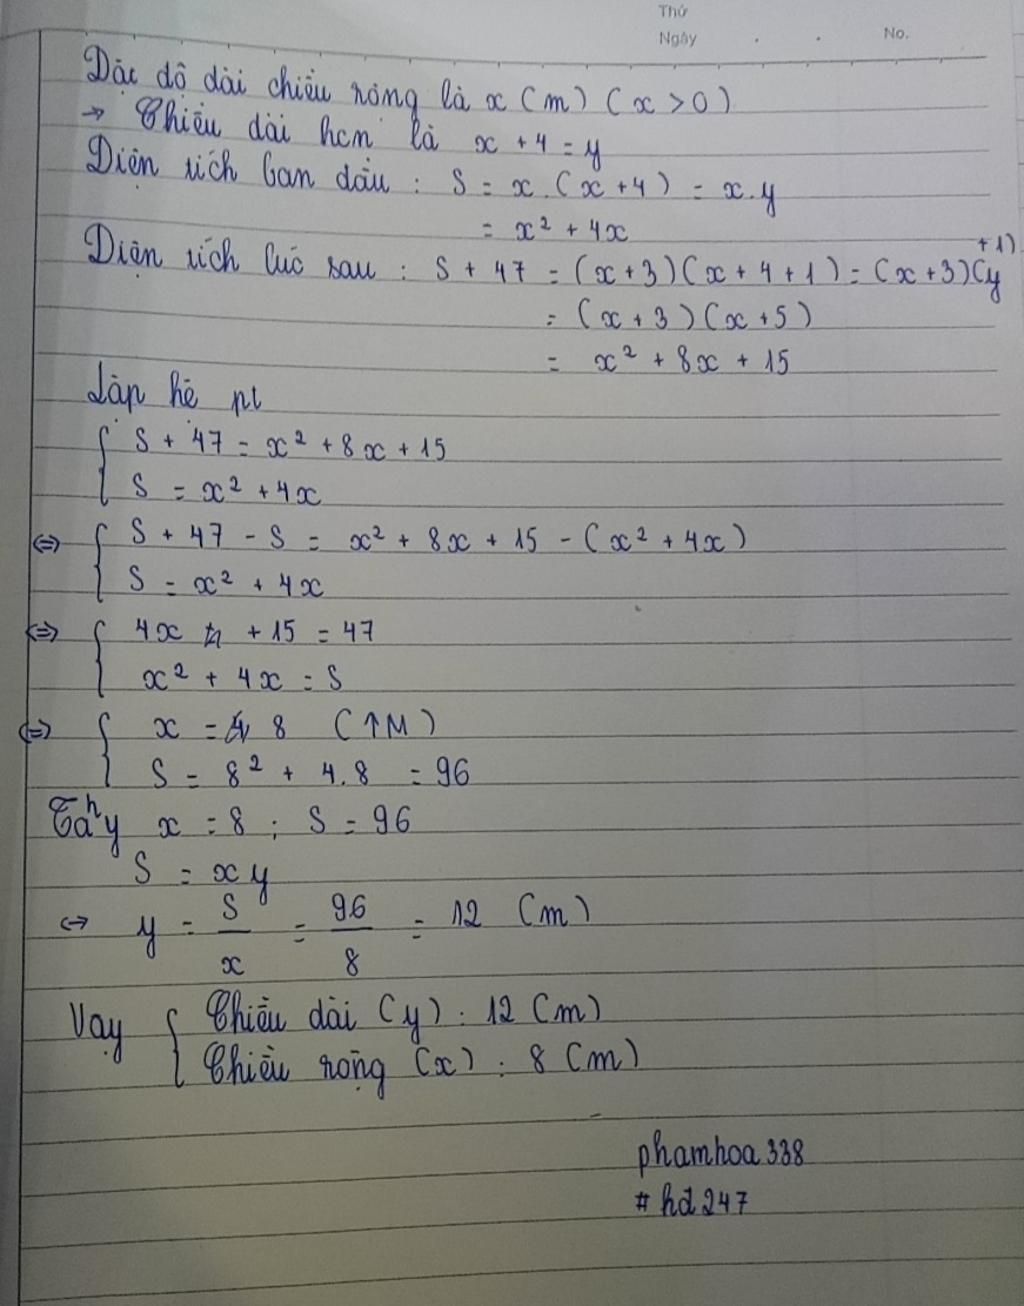 Thứ
Ngày . . No.
Đặt độ dài chiều rộng là x (m) (x > 0)
→ Chiều dài hcn là x + 4 = y
Diện tích ban đầu : S = x.(x + 4) = x.y
= x² + 4x
Diện tích lúc sau : S + 47 = (x + 3)(x + 4 + 1) = (x + 3)(y + 1)
= (x + 3)(x + 5)
= x² + 8x + 15
Lập hệ pt
{ S + 47 = x² + 8x + 15
S = x² + 4x
⇔ { S + 47 - S = x² + 8x + 15 - (x² + 4x)
S = x² + 4x
⇔ { 4x + 15 = 47
x² + 4x = S
⇔ { x = 8 (TM)
S = 8² + 4.8 = 96
Thay x = 8 ; S = 96
S = xy
⇔ y = S/x = 96/8 = 12 (m)
Vậy { Chiều dài (y) : 12 (m)
Chiều rộng (x) : 8 (m)
phamhoa338
#hd247